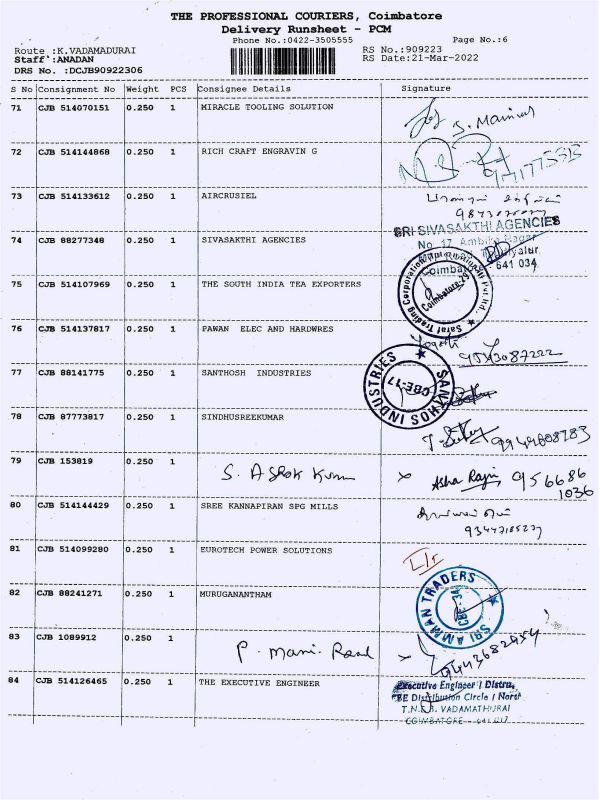 THE PROFESSIONAL COURIERS, Coimbatore
Delivery Runsheet - PCM
Phone No.:0422-3505555
Page No.:6
Route :K.VADAMADURAI
RS No.:909223
Staff :ANADAN
RS Date:21-Mar-2022
DRS No. :DCJB90922306
S No Consignment No Weight PCS Consignee Details Signature
71 CJB 514070151 0.250 1 MIRACLE TOOLING SOLUTION
72 CJB 514144868 0.250 1 RICH CRAFT ENGRAVIN G
73 CJB 514133612 0.250 1 AIRCRUSIEL
SRI SIVASAKTHI AGENCIES
No 17 Ambika Nagar
74 CJB 88277348 0.250 1 SIVASAKTHI AGENCIES
Coimbatore - 641 034
75 CJB 514107969 0.250 1 THE SOUTH INDIA TEA EXPORTERS
Safal Trading Corporation Pvt Ltd.
Coimbatore-29
76 CJB 514137817 0.250 1 PAWAN ELEC AND HARDWRES
77 CJB 88141775 0.250 1 SANTHOSH INDUSTRIES
SANTHOS INDUSTRIES
CBE-17
78 CJB 87773817 0.250 1 SINDHUSREEKUMAR
79 CJB 153819 0.250 1 S. Ashok Kumar x Asha Rajni 956686
1036
80 CJB 514144429 0.250 1 SREE KANNAPIRAN SPG MILLS
81 CJB 514099280 0.250 1 EUROTECH POWER SOLUTIONS
82 CJB 88241271 0.250 1 MURUGANANTHAM
SRI AMMAN TRADERS
CBE-34
83 CJB 1089912 0.250 1 P. Mani. x
84 CJB 514126465 0.250 1 THE EXECUTIVE ENGINEER
Executive Engineer / Distru.
Distribution Circle / North
T.N.E.B. VADAMATHURAI
COIMBATORE - 641 017